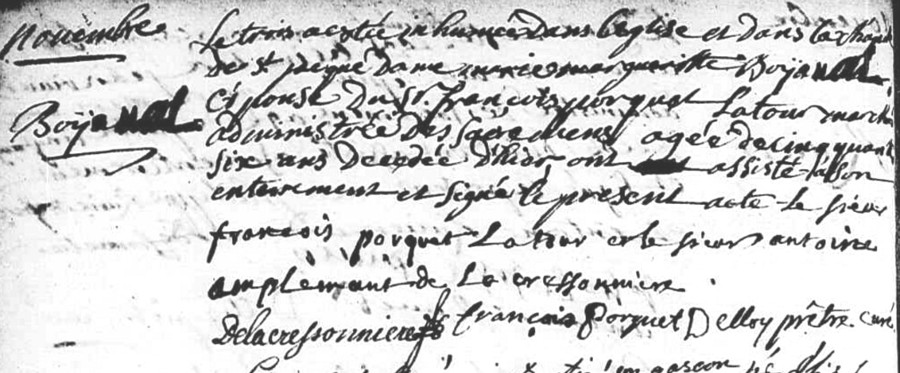 novembre
Le trois a esté inhumée dans l'eglise et dans la chap
de st piqué dame marie margueritte Boÿaual
Boÿaual
Epouse du Sr. françois porquet Latour march
administrée des sacremens agée de cinquant
six ans decedée d'hier ont assisté a son
enterement et signé le present acte le sieur
françois porquet La tour et le sieur antoine
amplemant de La cressonniere
Delacressonniere françois Porquet Delloy prêtre curé